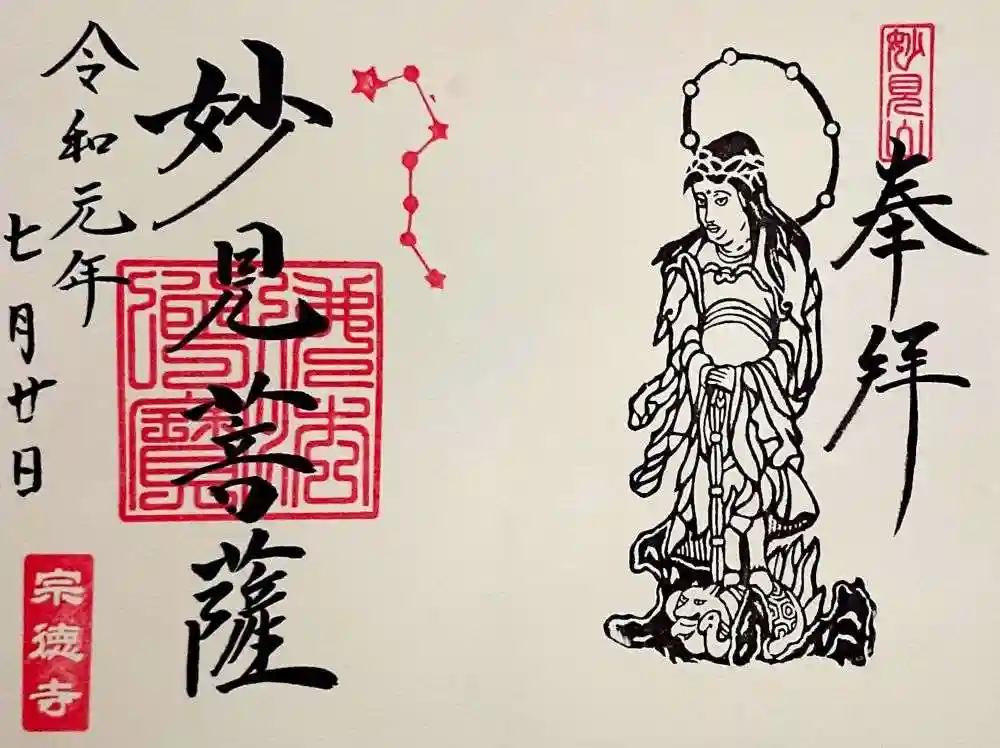 妙見山
奉拝
妙見菩薩
佛法僧寶
令和元年
七月廿日
宗徳寺